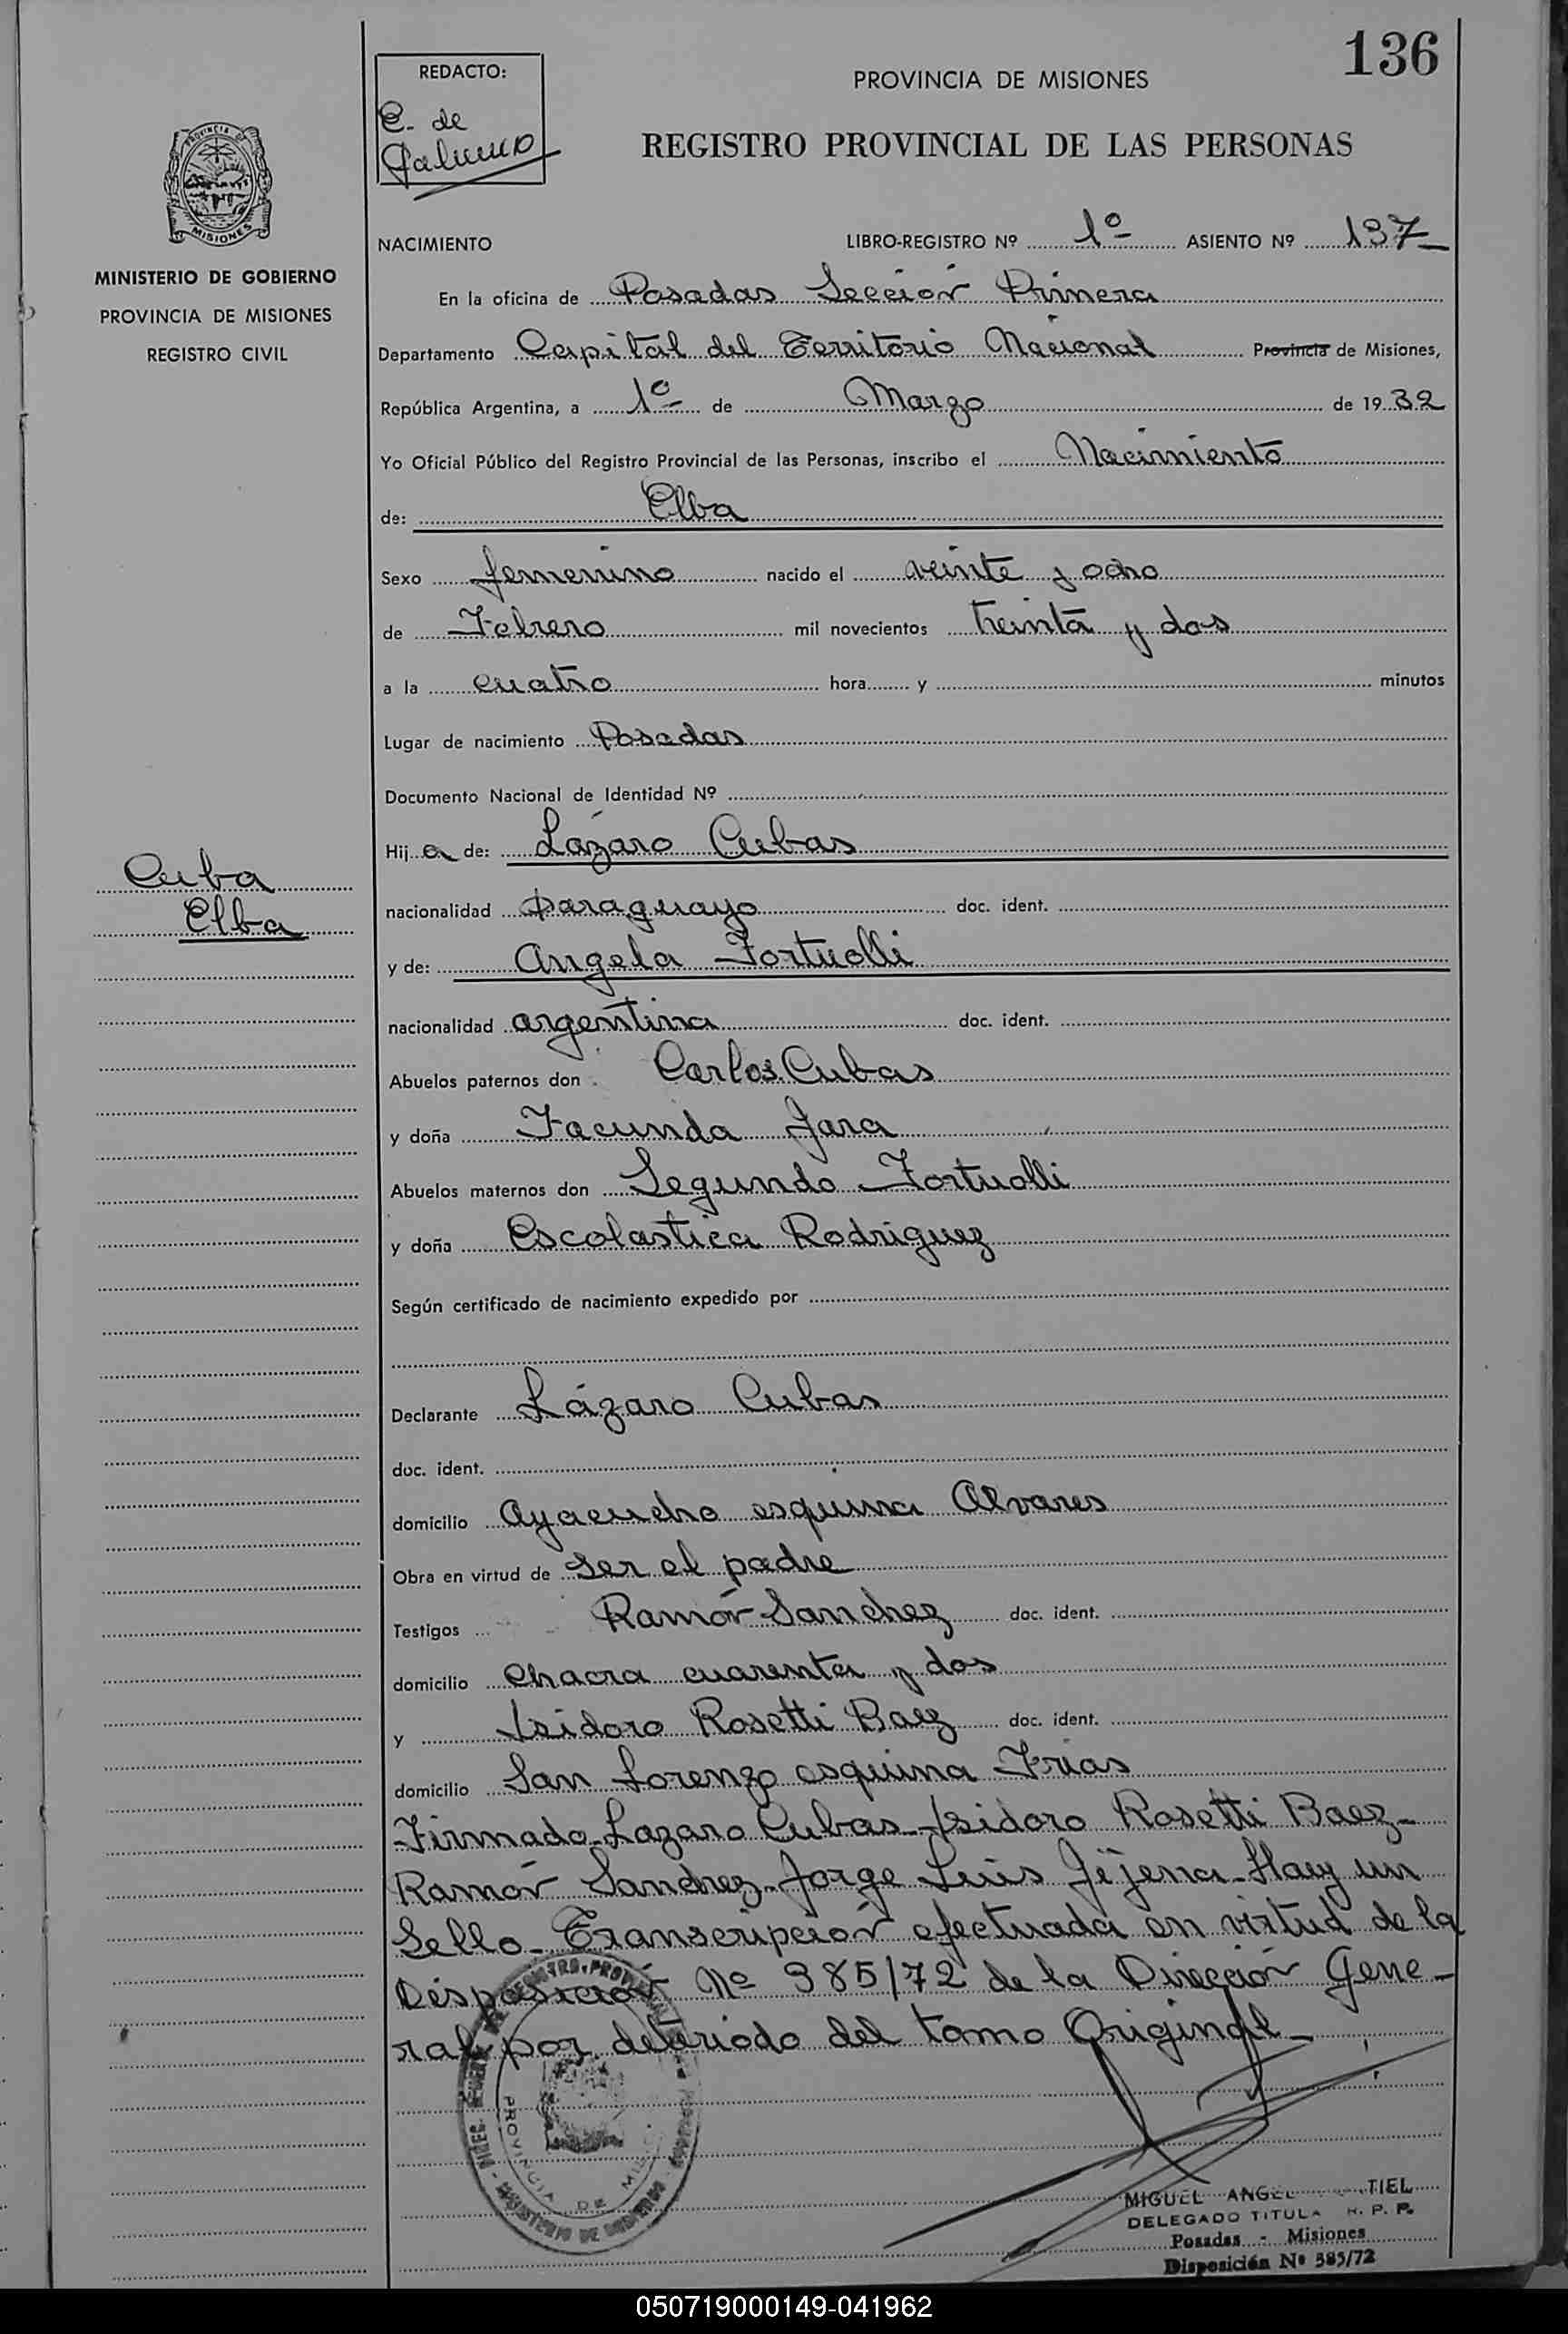 136
REDACTO:
E. de
PROVINCIA DE MISIONES
REGISTRO PROVINCIAL DE LAS PERSONAS
PROVINCIA DE
MISIONES
MINISTERIO DE GOBIERNO
PROVINCIA DE MISIONES
REGISTRO CIVIL
NACIMIENTO LIBRO-REGISTRO Nº 1º ASIENTO Nº 137
En la oficina de Posadas Sección Primera
Departamento Capital del Territorio Nacional Provincia de Misiones,
República Argentina, a 1º de Marzo de 1932
Yo Oficial Público del Registro Provincial de las Personas, inscribo el Nacimiento
de: Elba
Sexo femenino nacido el veinte y ocho
de Febrero mil novecientos treinta y dos
a la cuatro hora y minutos
Lugar de nacimiento Posadas
Documento Nacional de Identidad Nº
Hija de: Lázaro Cubas
Cuba
Elba
nacionalidad Paraguayo doc. ident.
y de: Angela Fortuolli
nacionalidad argentina doc. ident.
Abuelos paternos don Carlos Cubas
y doña Facunda Jara
Abuelos maternos don Segundo Fortuolli
y doña Escolastica Rodriguez
Según certificado de nacimiento expedido por
Declarante Lázaro Cubas
doc. ident.
domicilio Ayacucho esquina Alvares
Obra en virtud de ser el padre
Testigos Ramón Sanchez doc. ident.
domicilio Chacra cuarenta y dos
y Isidoro Rosetti Baez doc. ident.
domicilio San Lorenzo esquina Frias
Firmado-Lazaro Cubas-Isidoro Rosetti Baez-
Ramón Sanchez-Jorge Luis Jejena-Hay un
Sello-Transcripción efectuada en virtud de la
Disposición Nº 385/72 de la Dirección Gene-
ral por deteriodo del tomo Original-
PROVINCIA DE
MINISTERIO DE GOBIERNO
MIGUEL ANGEL
DELEGADO TITULA R. P. P.
Posadas - Misiones
Disposición Nº 385/72
050719000149-041962